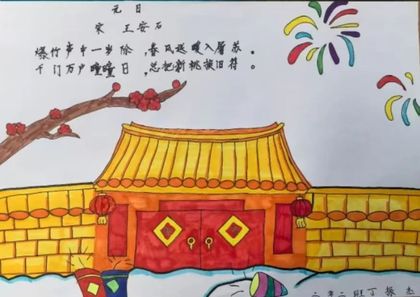 元日
宋 王安石
爆竹声中一岁除 春风送暖入屠苏。
千门万户曈曈日,总把新桃换旧符。
二年二班丁振